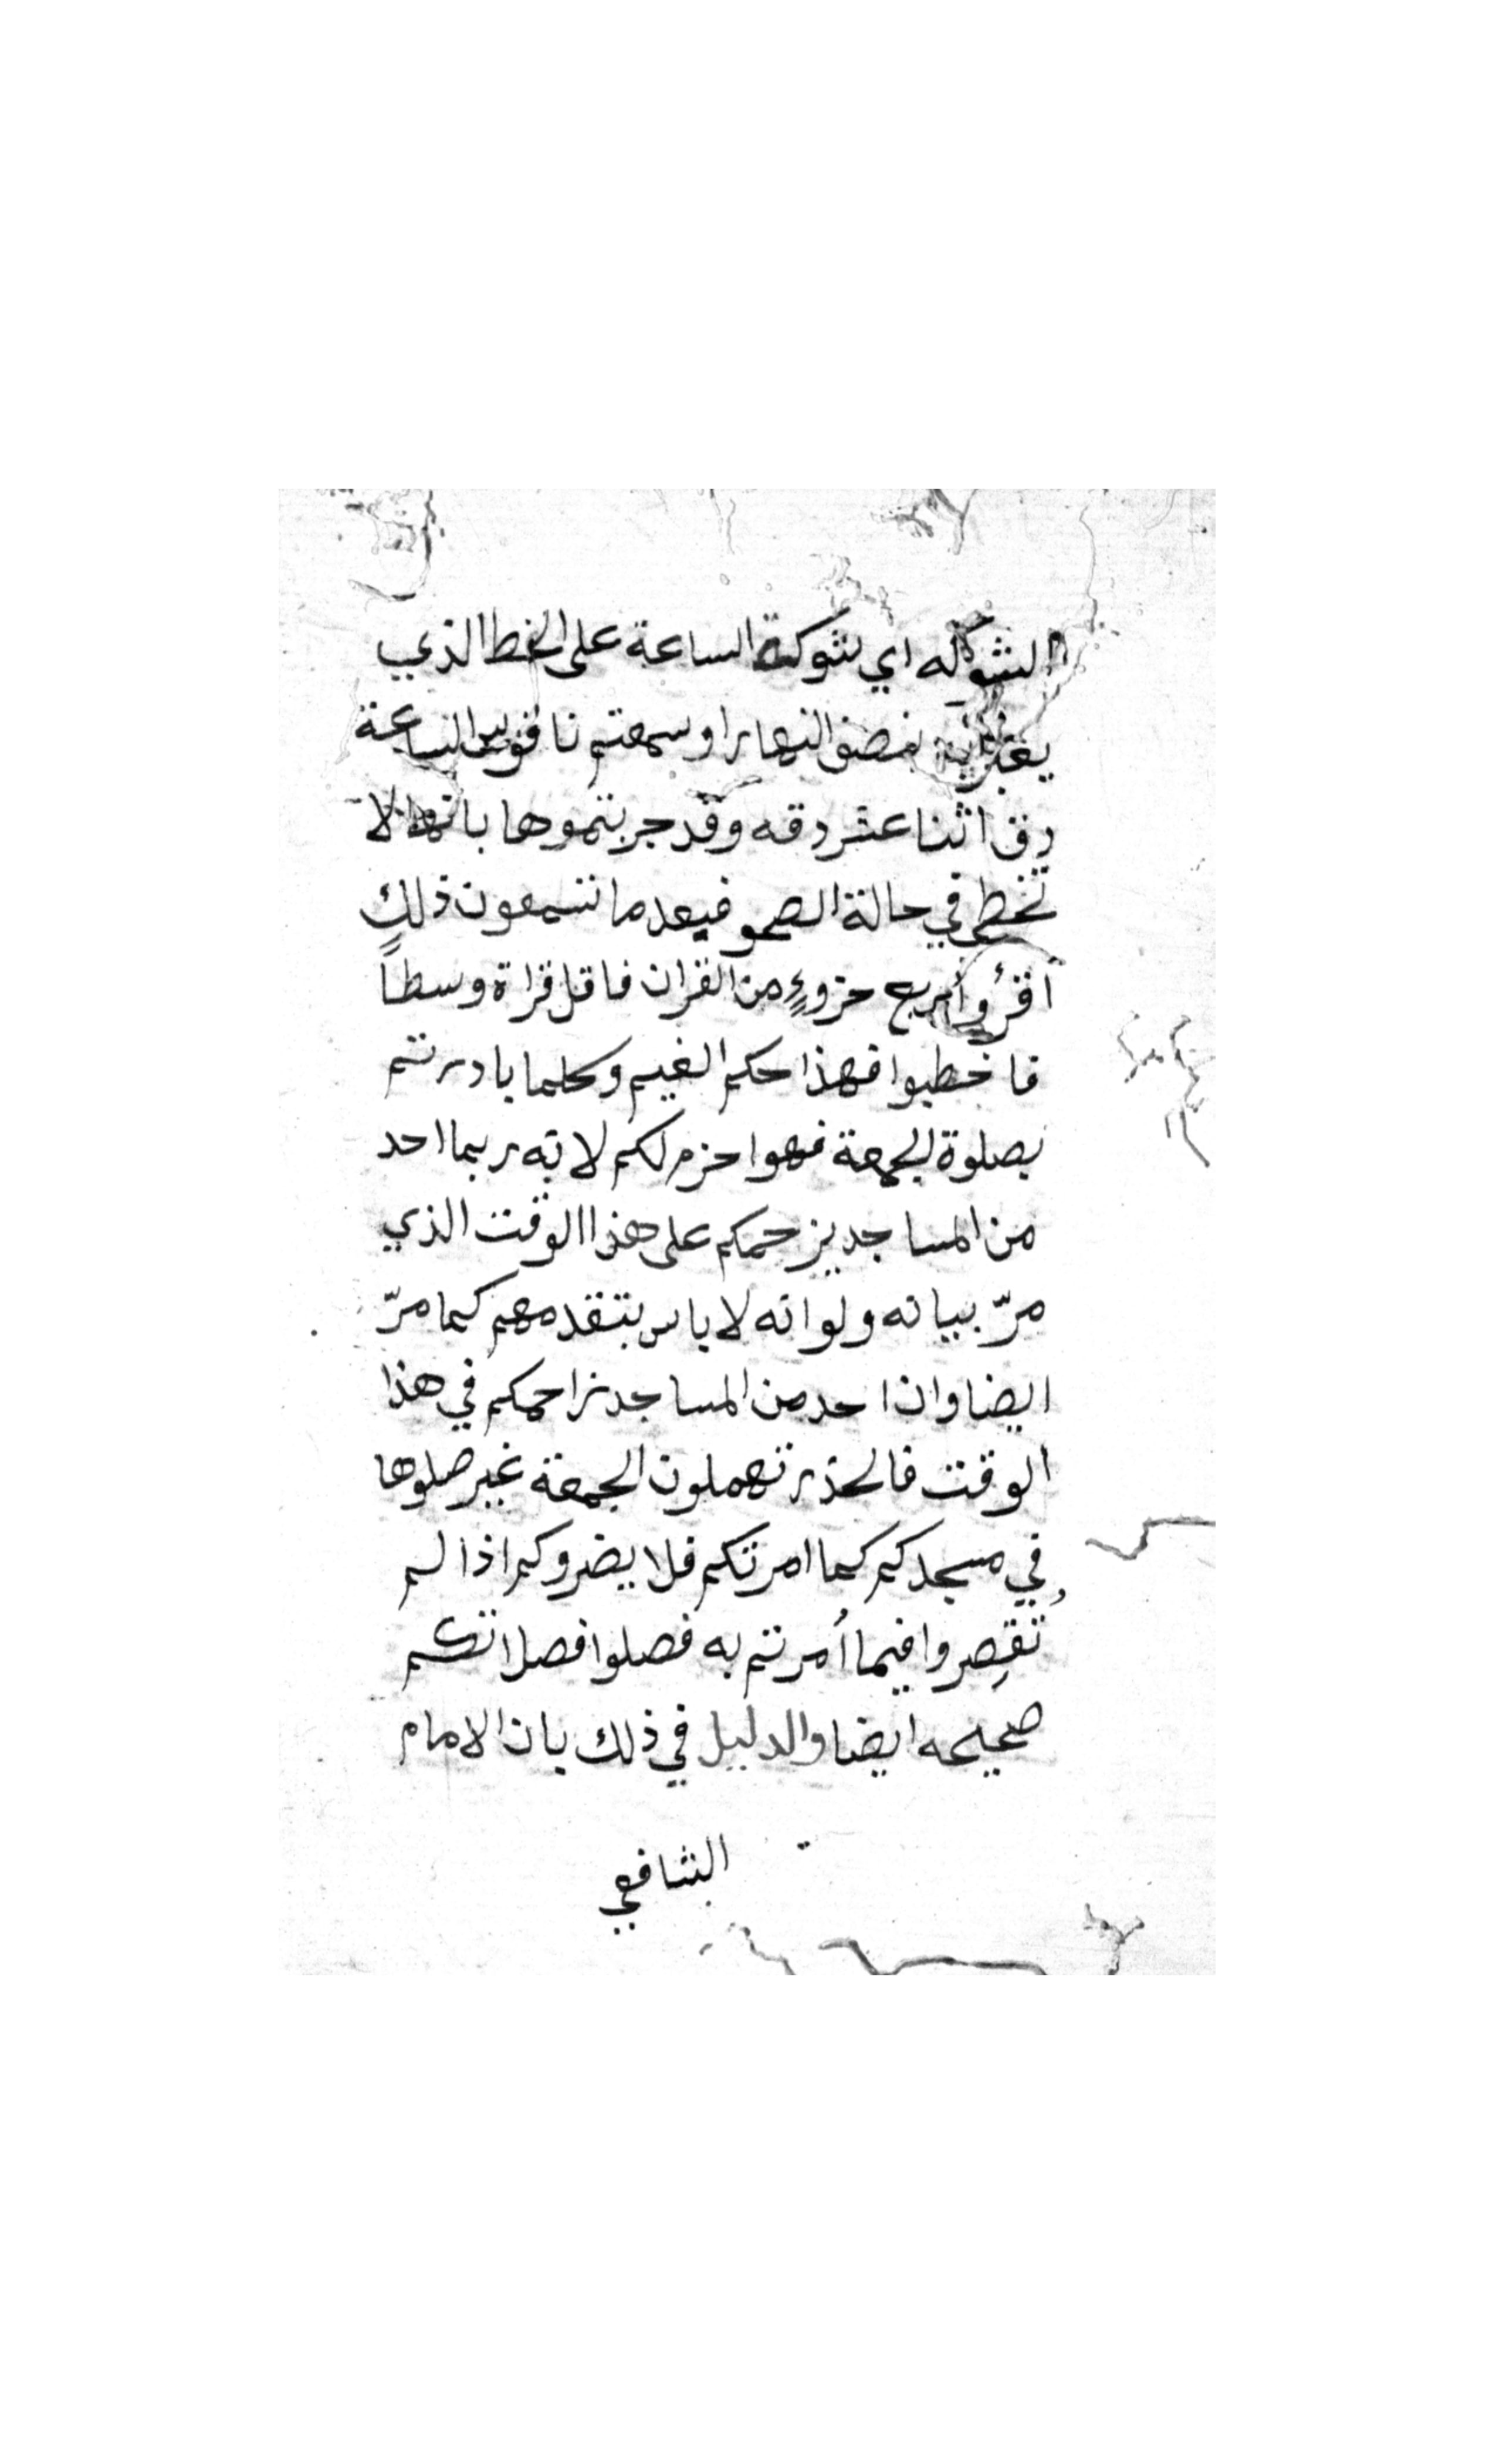 الشوكه اي شوكة الساعة على الخط الذي
بنصف النهار او سمعتم ناقوس الساعة
دق اثنا عشر دقه وقد جربتموها بانها لا
تخطي في حالة الصحو فبعد ما تسمعون ذلك
أقرؤا أربع حزوءٍ من القران فاقل قراة وسطاً
فاخطبوا فهذا حكم الغيم وكلما بادرتم
بصلوة الجمعة فهوا حزم لكم لانه ربما احد
من المساجد يزحمكم على هذا الوقت الذي
مرّ بيانه ولوانه لا باس بتقدمهم كما مرّ
ايضا وان احد من المساجد زاحمكم في هذا
الوقت فالحذر تهملون الجمعة غير صلوها
في مسجدكم كما امرتكم فلا يضروكم اذا لم
تُقصِروا فيما أُمرتم به فصلوا فصلاتكم
صحيحه ايضا والدليل في ذلك بان الامام
الشافعي